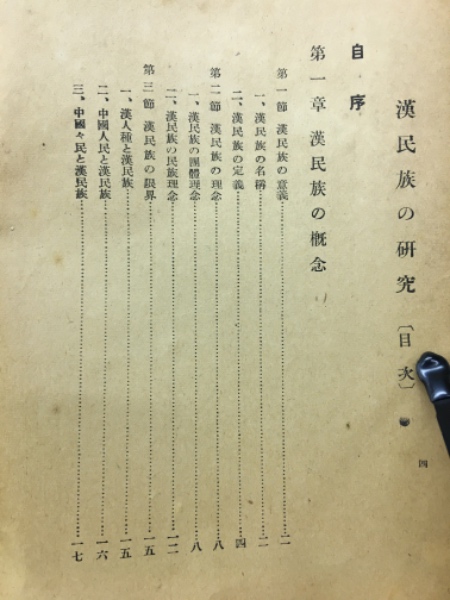 漢民族の研究 〔目次〕
自序
第一章 漢民族の概念
第一節 漢民族の意義……二
一、漢民族の名稱……二
二、漢民族の定義……四
第二節 漢民族の理念……八
一、漢民族の團體理念……八
二、漢民族の民族理念……一二
第三節 漢民族の限界……一五
一、漢人種と漢民族……一五
二、中國人民と漢民族……一六
三、中國々民と漢民族……一七
四